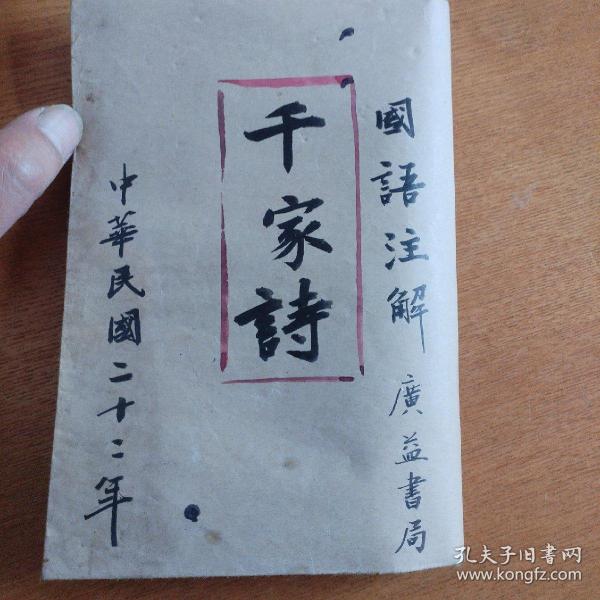 國語注解 廣益書局
千家詩
中華民國二十二年
孔夫子旧书网
www.kongfz.com